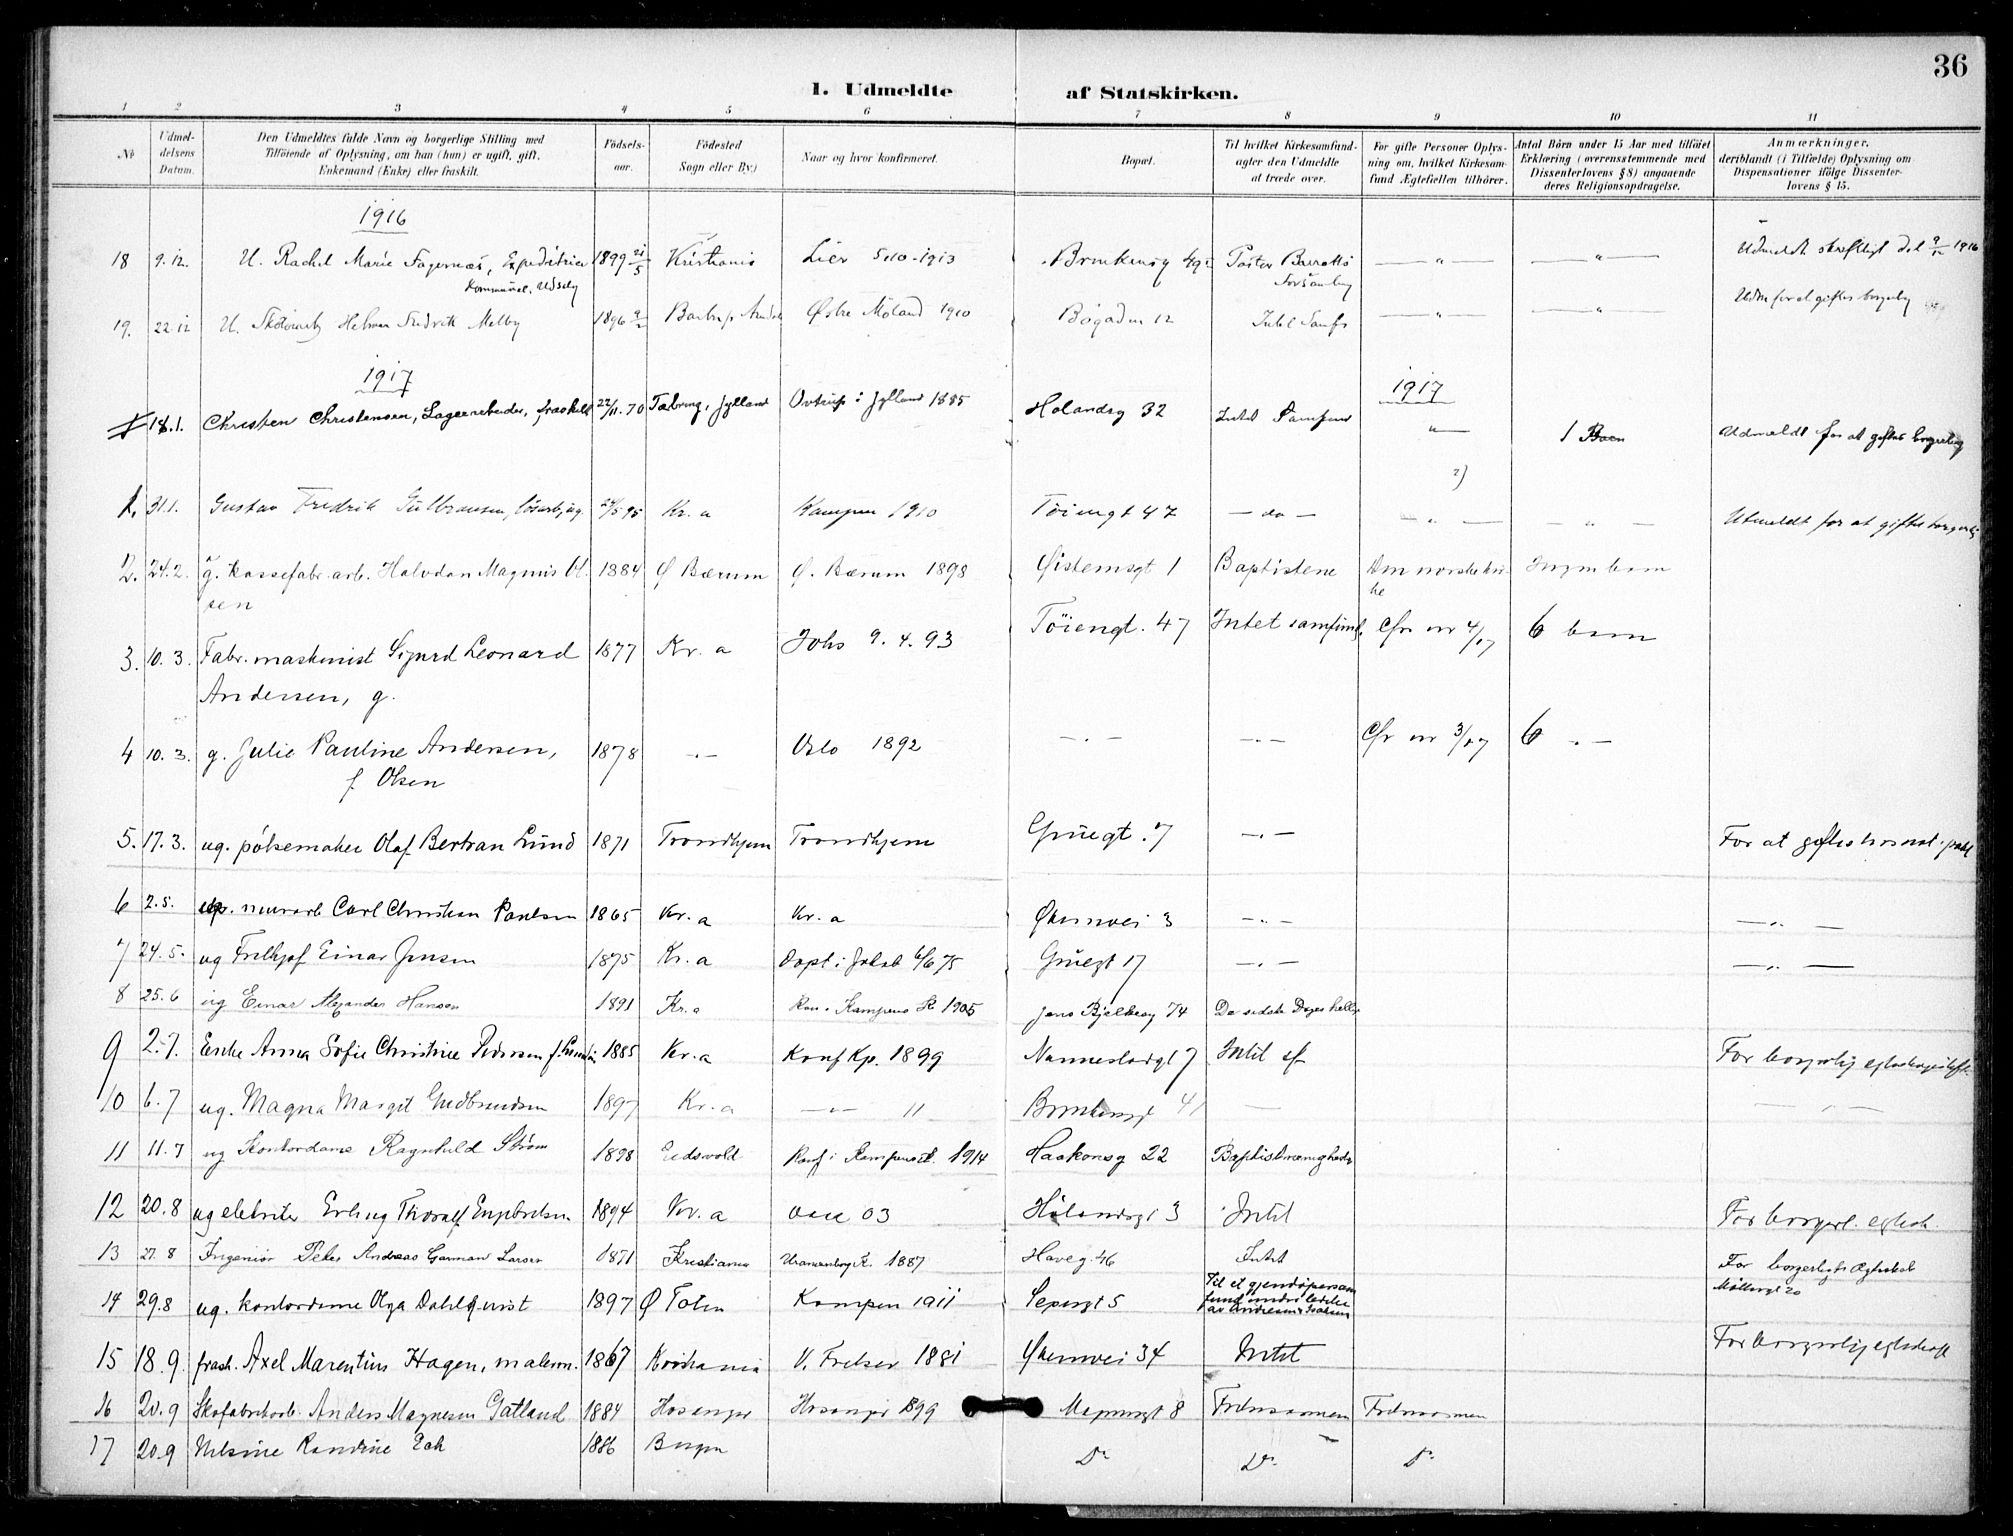 36
1. Udmeldte af Statskirken.
1 2 3 4 5 6 7 8 9 10 11
No
Udmel-
delsens
Datum.
Den Udmeldtes fulde Navn og borgerlige Stilling med
Tilföiende af Oplysning, om han (hun) er ugift, gift,
Enkemand (Enke) eller fraskilt.
Födsels-
aar.
Födested
Sogn eller By.)
Naar og hvor konfirmeret.
Bopæl.
Til hvilket Kirkesamfund-
agter den Udmeldte
at træde over.
For gifte Personer Oplys-
ning om, hvilket Kirkesam-
fund Ægtefællen tilhörer.
Antal Börn under 15 Aar med tilföiet
Erklæring (overensstemmende med
Dissenterlovens § 8) angaaende
deres Religionsopdragelse.
Anmærkninger.
deriblandt (i Tilfælde) Oplysning om
Dispensationer ifölge Dissenter-
lovens § 15.
1916
18 9.12. U. Rachel Marie Fagernæs, Expeditrice 1899 21/5 Kristiania Lier 5/10-1913 Pastor Barratts — " — — " — Udmeldt skriftligt d. 9/12 1916
Kommunal. Udsalg Forsamling
19. 22.12 U. Helmer Fredrik Melby 1896 Østre Moland 1910 Bøgaden 12 Intet Samf. — " — — " — Udm for at giftes borgerlig
1917 1917
18.1. Christen Christensen, Lagerarbeider, fraskilt 22/11.70 Taabring, Jylland Ovtrup i Jylland 1885 Holandsg 32 Intet Samfund " — 1 Barn Udmeldt for at giftes borgerlig
2)
1. 31.1. Gustav Fredrik Gulbransen, løsarb, ug. 24/5 95 Kr. a Kampen 1910 Tøiengt 47 — do — — " — — " — Utmeldt for at giftes borgerl.
2. 24.2. g. kassefabr. arb. Halvdan Magnus Ol. 1884 Ø Bærum Ø. Bærum 1898 Østensgt 1 Baptistene Den norske kir- Ingen barn
sen ke
3. 10.3. Fabr. maskinist Sigurd Leonard 1877 Kr. a Johs 9.4.93 Tøiengt. 47 Intet samfund. Cfr nr 4/17 6 barn
Andersen, g.
4 10.3. g. Julie Pauline Andersen, 1878 -.- Oslo 1892 -.- -.- Cfr nr 3/17 6 -.-
f. Olsen
5. 17.3. ug. pølsemaker Olaf Bertran Lund 1871 Trondhjem Trondhjem Grüegt. 7 -.- For at giftes hos not. publ
6 2.5. murarb Carl Christian Paulsen 1865 Kr. a Kr. a Økernvei 3 -.- -.-
7 24.5. ug Fridtjof Einar Jensen 1875 Kr. a Døpt i Jakob 6/6 75 Grüegt 17 -.- -.-
8 25.6 ug Einar Alexander Hansen 1891 Kr. a Kon. i Kampens K 1905 Jens Bjelkesg 74 De sidste Dages hellige
9 2.7. Enke Anna Sofie Christine Pedersen f. 1885 Kr. a Konf Kp. 1899 Nannestadgt 7 Intet sf For borgerlig egteskapsstiftelse
10 6.7 ug. Magna Margit Gudbrandsen 1897 Kr. a -.- 11 41 — -.-
11 11.7 ug Kontordame Ragnhild Strøm 1898 Eidsvold Konf i Kampens K. 1914 Haakonsg 22 Baptistmenigheden
12 20.8 ug elektriker Erling Thoralf Engebretsen 1894 Kr. a 03 Hølandsgt 3 Intet For borgerl. egtesk.
13 27.8 Ingeniør Peter Andreas Garman Larsen 1871 Kristiania Uranienborg K. 1887 Haveg. 46 Intet For borgerligt Ægteskab
Møllergt 20
14 29.8 ug. kontordame Olga Dahlqvist 1897 Ø Toten Kampen 1911 5 Til et gjendøpersam
fund under ledelse
av Andresen & Isaksen
15 18.9. frask. Axel Marentius Hagen, malerm. 1867 Kristiania V. Frelser 1881 Økernvei 34 Intet For borgerlig egteskap
16 20.9 Skofabrikarb. Anders Magnesen Gatland 1884 Hosanger Hosanger 1899 8 Frelsesarmeen Frelsesarmeen
17 20.9 Nelsine Randine Eek 1886 Bergen Do Do Do